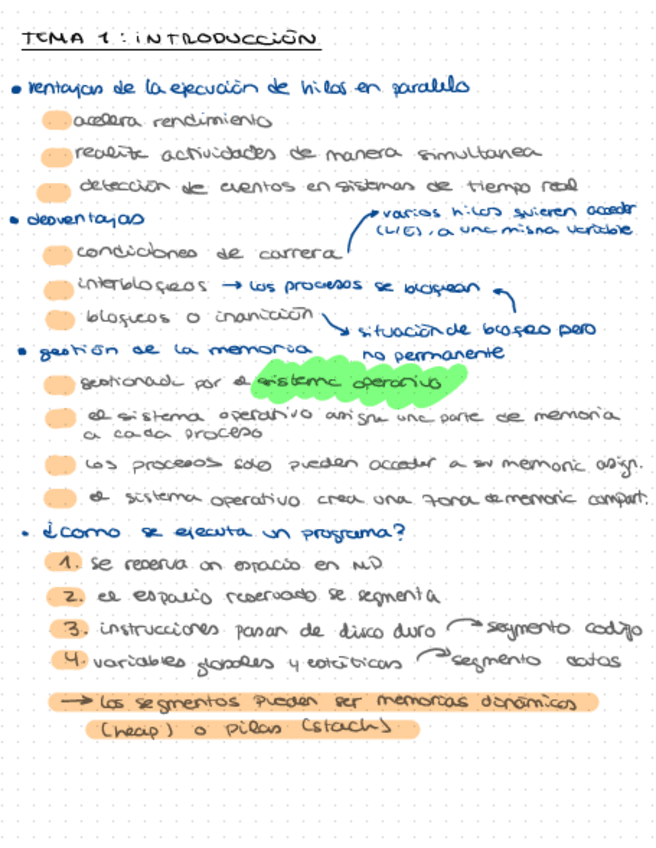 TEMA 1: INTRODUCCIÓN
• ventajas de la ejecución de hilos en paralelo
acelera rendimiento
realiza actividades de manera simultanea
detección de eventos en sistemas de tiempo real
• desventajas
varios hilos quieren acceder
(L/E), a una misma variable
condiciones de carrera
interbloqueos → los procesos se bloquean
bloqueos o inanición
situación de bloqueo pero
no permanente
• gestión de la memoria
gestionada por el sistema operativo
el sistema operativo asigna una parte de memoria
a cada proceso
Los procesos solo pueden acceder a su memoria asign.
el sistema operativo crea una zona de memoria compart.
• ¿como se ejecuta un programa?
1. se reserva un espacio en MP
2. el espacio reservado se segmenta
3. instrucciones pasan de disco duro → segmento codigo
4. variables globales y estáticas → segmento datos
→ Los segmentos pueden ser memorias dinámicas
(heap) o pilas (stack)